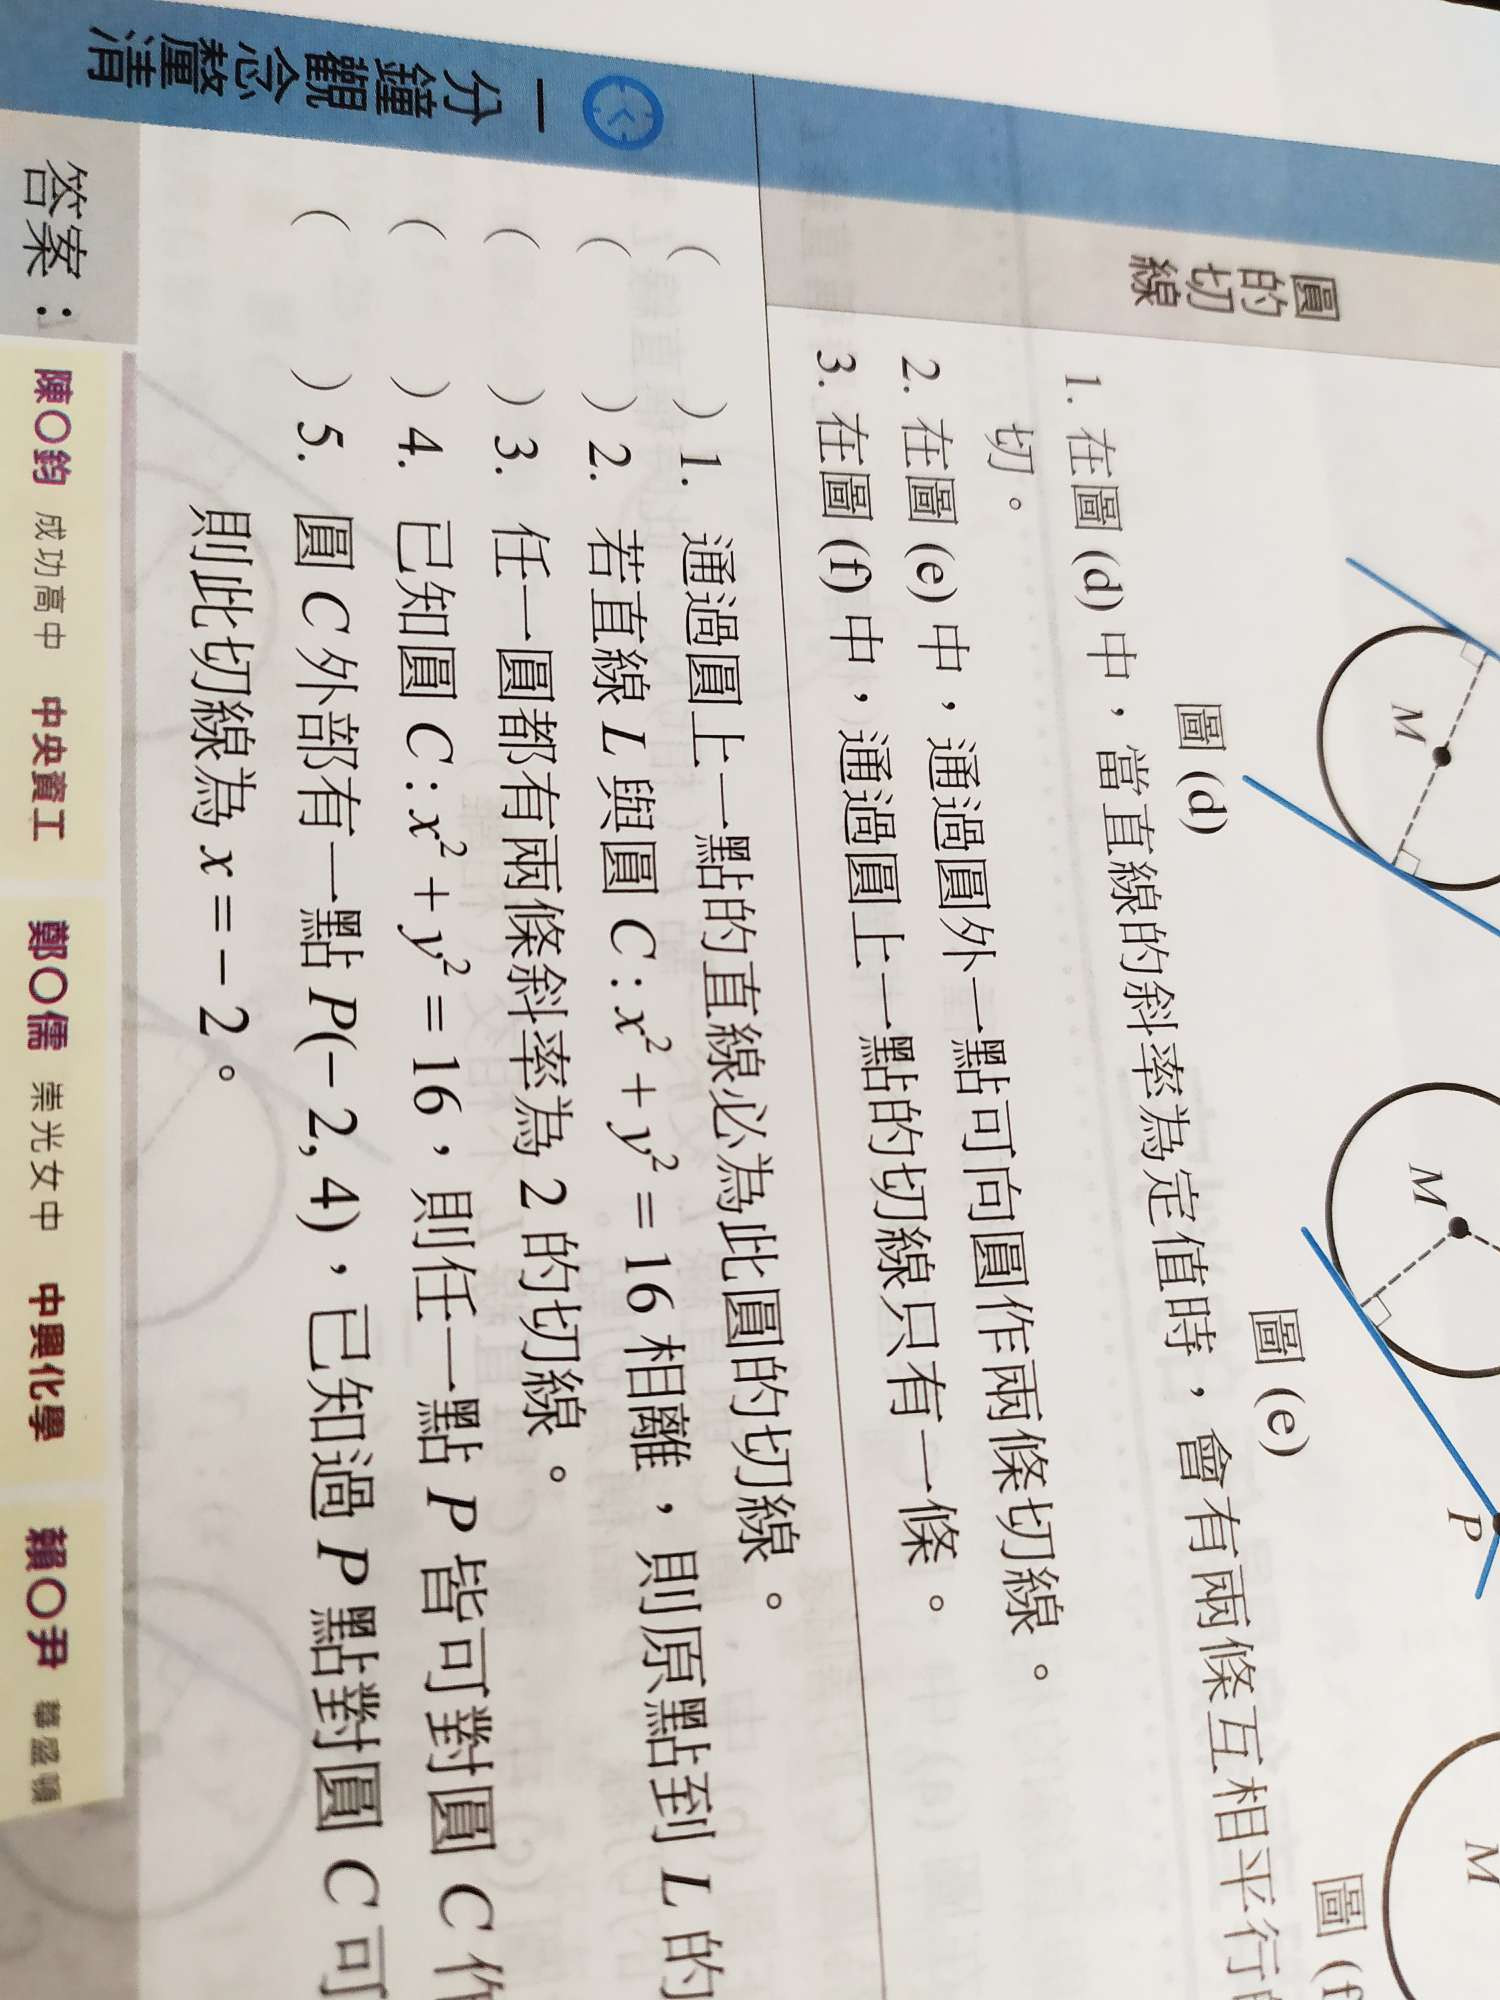 M
M
P
M
圖 (d)
圖 (e)
圖 (f
圓的切線
1. 在圖 (d) 中，當直線的斜率為定值時，會有兩條互相平行的
切。
2. 在圖 (e) 中，通過圓外一點可向圓作兩條切線。
3. 在圖 (f) 中，通過圓上一點的切線只有一條。
一分鐘觀念釐清
( ) 1. 通過圓上一點的直線必為此圓的切線。
( ) 2. 若直線 L 與圓 C : x² + y² = 16 相離，則原點到 L 的
( ) 3. 任一圓都有兩條斜率為 2 的切線。
( ) 4. 已知圓 C : x² + y² = 16，則任一點 P 皆可對圓 C 作
( ) 5. 圓 C 外部有一點 P(− 2, 4)，已知過 P 點對圓 C 可
則此切線為 x = − 2。
答案：
陳〇鈞 成功高中 中央資工 鄭〇儒 崇光女中 中興化學 賴〇尹 華盛頓